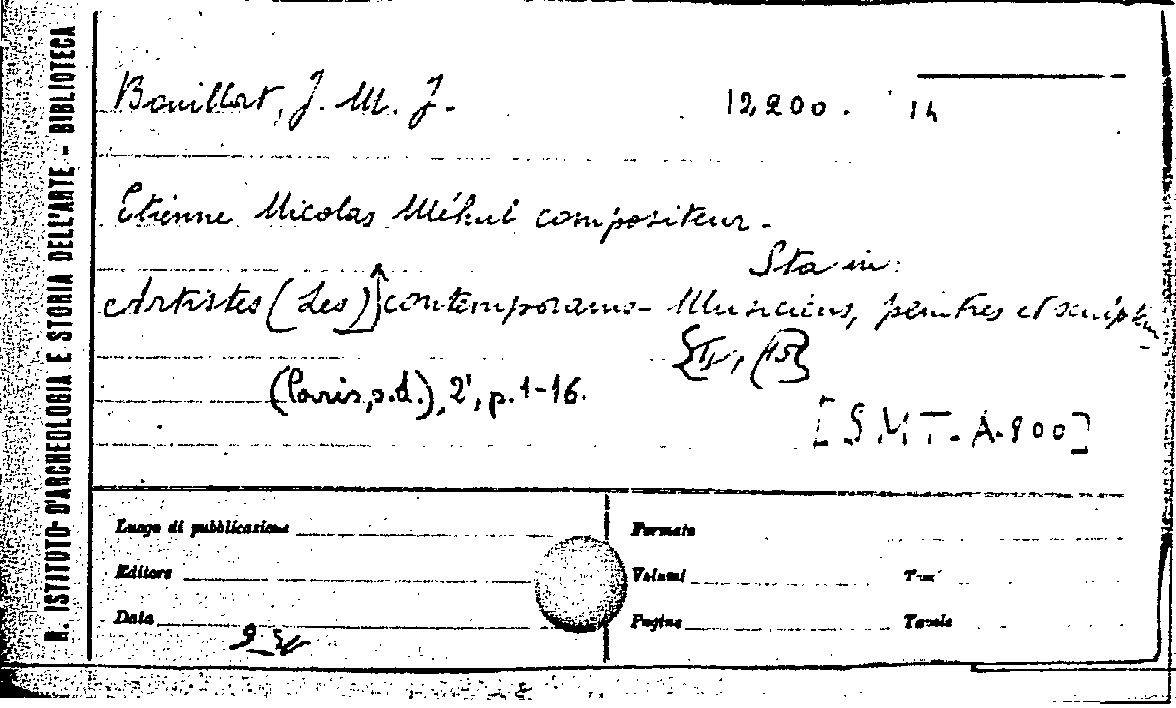 R. ISTITUTO D'ARCHEOLOGIA E STORIA DELL'ARTE - BIBLIOTECA
Bouillart, J. M. J. 12,200. 14
Etienne Nicolas Méhul compositeur.
Sta in:
Artistes (Les) contemporains - Musiciens, peintres et sculpteurs
(Paris, s.d.), 2', p. 1-16.
[SMT. A. 800]
Luogo di pubblicazione Formato
Editore Volumi
Data Pagine Tavole